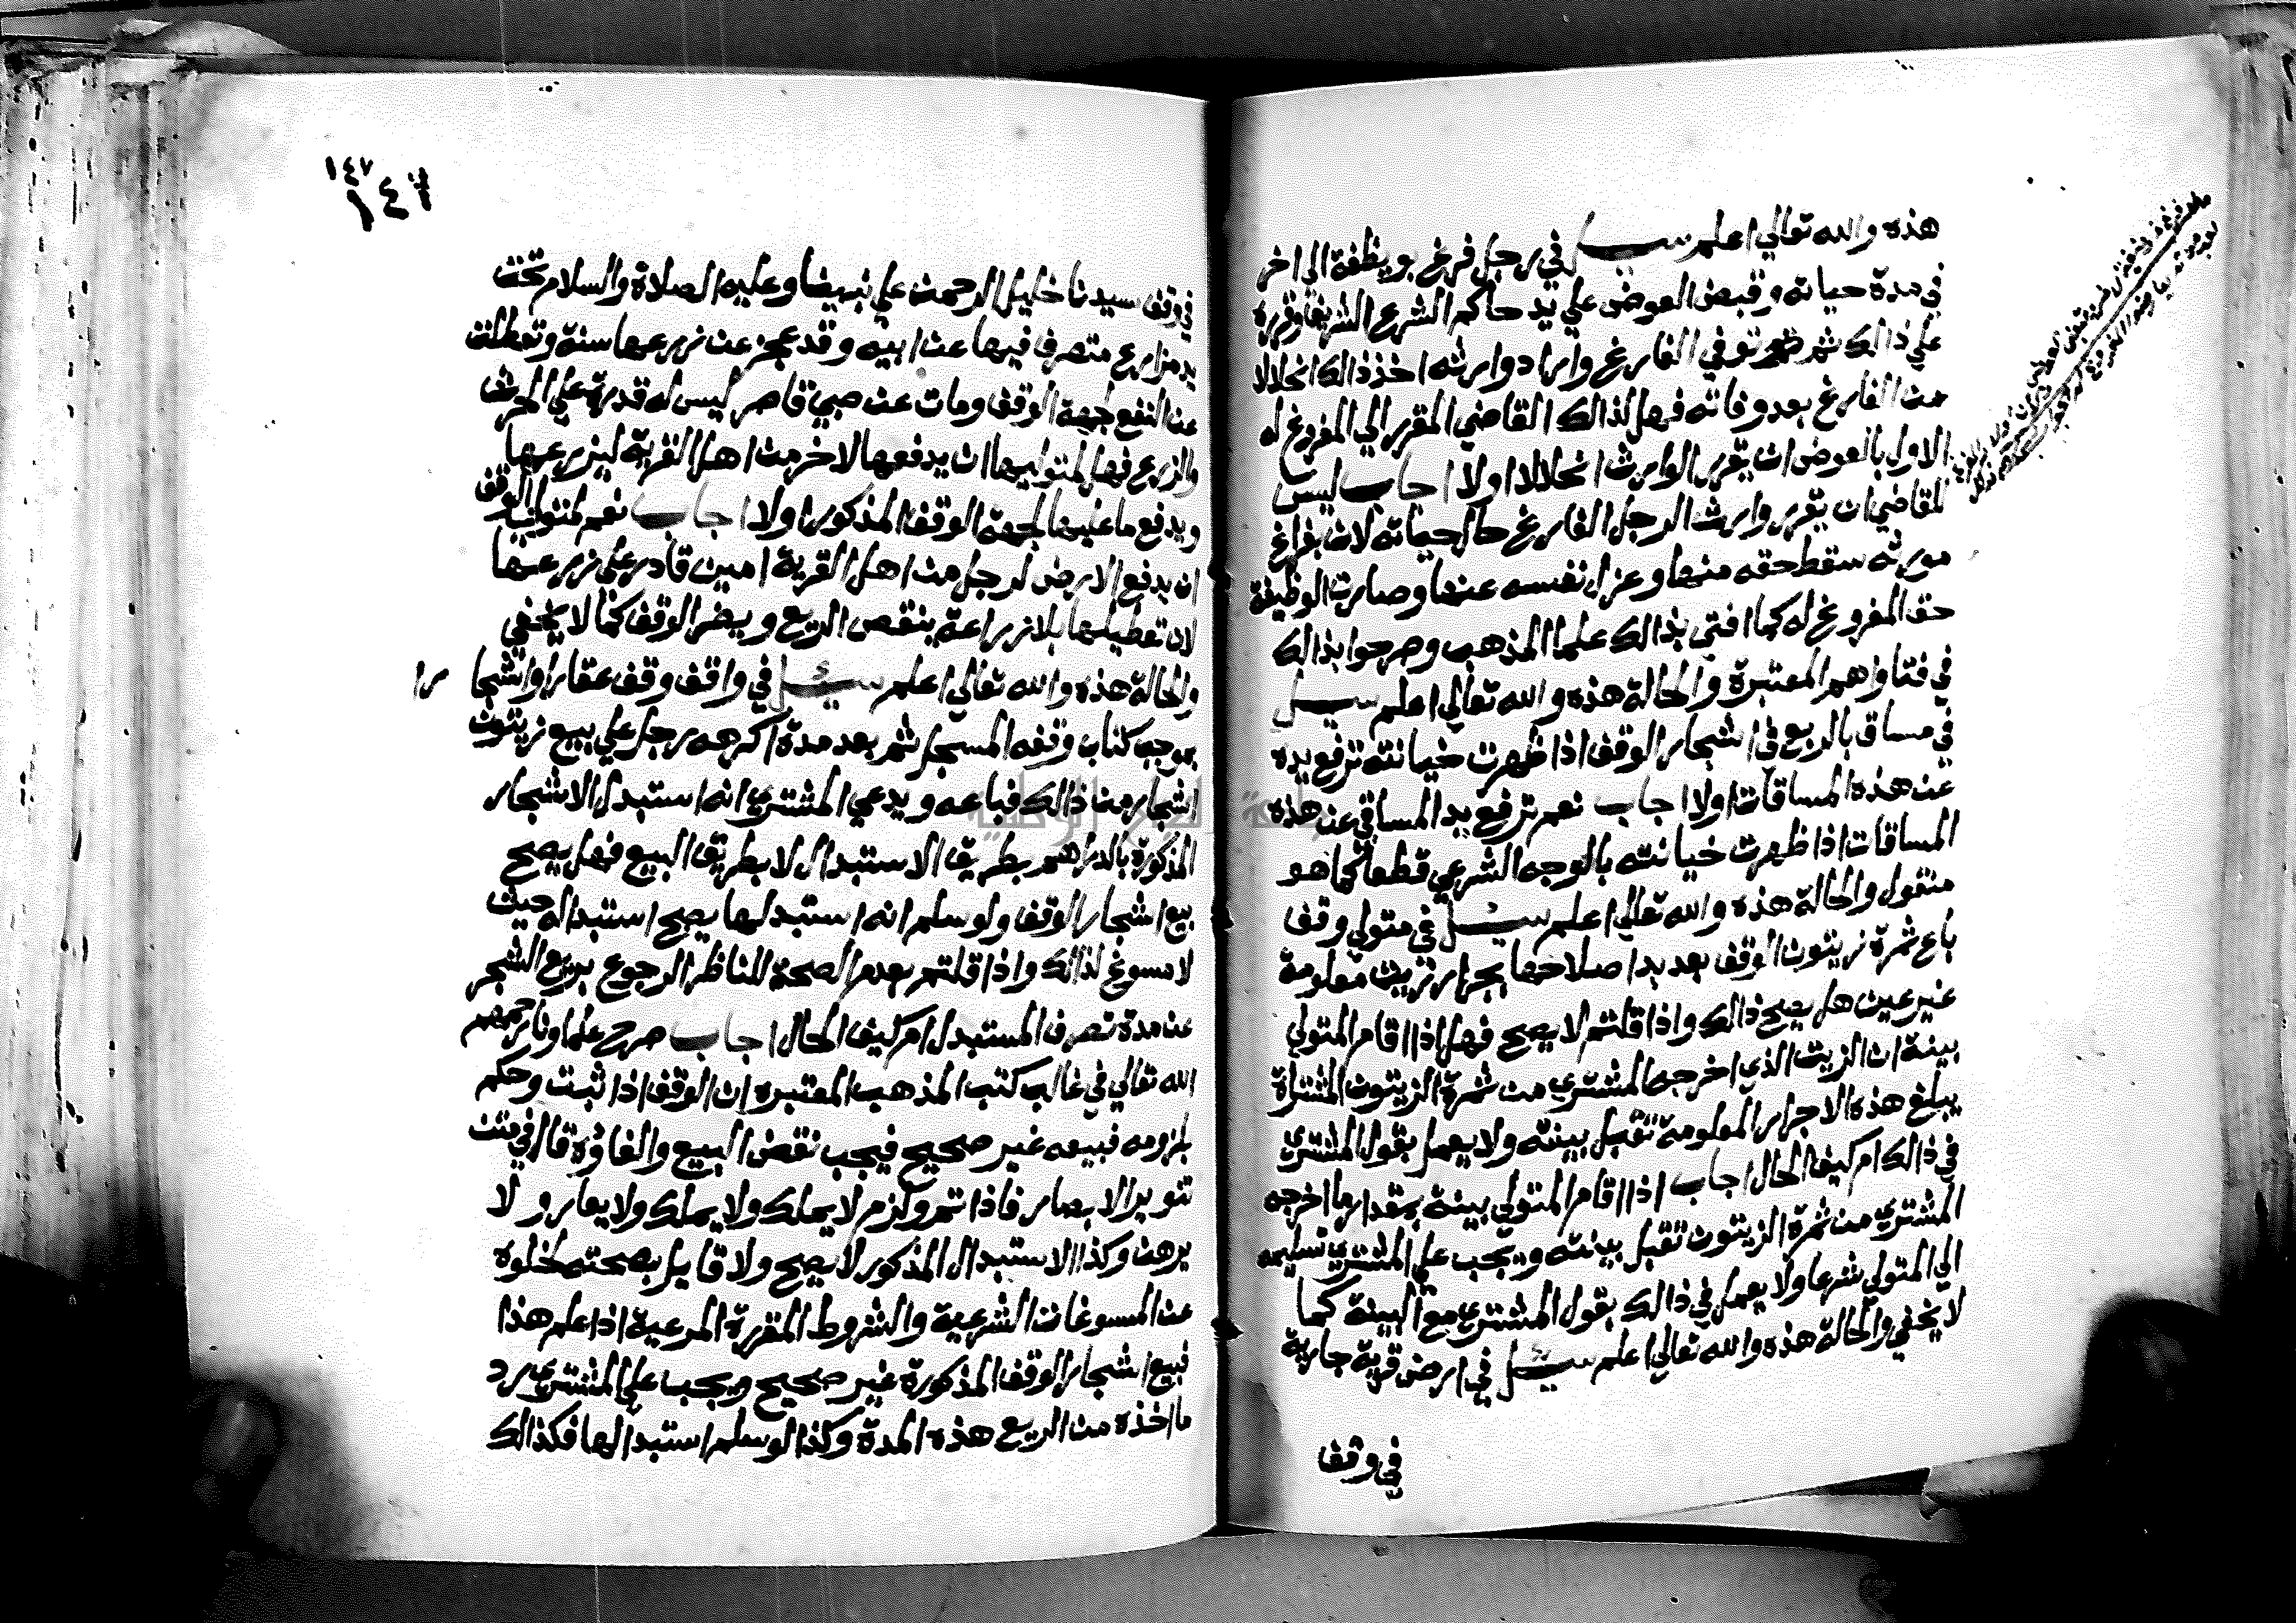 هذه والله تعالي اعلم سيل في رجل فرغ بويظفة الي اخر
في مدة حياته وقبض العوض علي يد حاكم الشرع الشريف وقرره
علي ذالك ثم توفي الفارغ واراد وارثه اخذ ذالك انحلالا
من الفارغ بعد وفاته فهل لذالك القاضي المقرر الي المفروغ له
الاول بالعوض ان يقرر الوارث انحلالا اولا اجاب ليس
للقاضي ان يقرر وارث الرجل الفارغ حال حياته لان بفراغ
مورثه سقط حقه منها وعزل نفسه عنها وصارت الوظيفة
حق المفروغ له كما افتى بذالك علما المذهب وصرحوا بذالك
في فتاوهم المعتبرة والحالة هذه والله تعالي اعلم سيل
في مساق بالربع في اشجار الوقف اذا ظهرت خيانته ترفع يده
عن هذه المساقات اولا اجاب نعم ترفع يد المساقي عن هذه
المساقات اذا ظهرت خيانته بالوجه الشرعي قطعا كما هو
منقول والحالة هذه والله تعالي اعلم سيل في متولي وقف
باع ثمرة زيتون الوقف بعد بدا صلاحها بجرار زيت معلومة
غير عين هل يصح ذالك واذا قلتم لا يصح فهل اذا اقام المتولي
بينة ان الزيت الذي اخرجه المشتري من ثمرة الزيتون المشتراة
يبلغ هذه الاجرار المعلومة تقبل بينته ولا يعمل بقول المشتري
في ذالك ام كيف الحال اجاب اذا اقام المتولي بينة بمقدار ما اخرجه
المشتري من ثمرة الزيتون تقبل بينته ويجب علي المشتري تسليمه
الي المتولي شرعا ولا يعمل في ذالك بقول المشتري مع البينة كما
لا يخفي والحالة هذه والله تعالي اعلم سيل في ارض قرية جارية
في وقف
١٤٧
في وقف سيدنا خليل الرحمن علي نبينا وعليه الصلاة والسلام تحت
يد مزارع متصرف فيها عن ابيه وقد عجز عن زرعها سنة وتعطلت
عن النفع لجهة الوقف ومات عن صبي قاصر ليس له قدرة علي الحرث
والزرع فهل لمتوليها ان يدفعها لاخر من اهل القرية ليزرعها
ويدفع ما عليها لجهة الوقف المذكور اولا اجاب نعم لمتولي الوقف
ان يدفع الارض لرجل من اهل القرية امين قادر علي زرعها
لان تعطيلها بلا زراعة ينقص الريع ويضر الوقف كما لا يخفي
والحالة هذه والله تعالي اعلم سيل في واقف وقف عقارا واشجارا
بموجب كتاب وقفه المسجل ثم بعد مدة اكرهه رجل علي بيع زيتون
اشجار من ذالك فباعه ويدعي المشتري انه استبدل الاشجار
المذكورة بالدراهم بطريق الاستبدال لا بطريق البيع فهل يصح
بيع اشجار الوقف ولو سلم انه استبدلها يصح استبداله حيث
لا مسوغ لذالك واذا قلتم بعدم الصحة للناظر الرجوع بريع الشجر
عن مدة تصرف المستبدل ام كيف الحال اجاب صرح علماونا رحمهم
الله تعالي في غالب كتب المذهب المعتبره ان الوقف اذا ثبت وحكم
بلزومه فبيعه غير صحيح فيجب نقض البيع والغاؤه قال في متن
تنوير الابصار فاذا تم ولزم لا يملك ولا يملك ولا يعار ولا
يرهن وكذا الاستبدال المذكور لا يصح ولا قايل بصحته لخلوه
عن المسوغات الشرعية والشروط المقررة المرعية اذا علم هذا
فبيع اشجار الوقف المذكورة غير صحيح ويجب علي المشتري رد
ما اخذه من الريع هذه المدة وكذا لو سلم استبدالها فكذالك